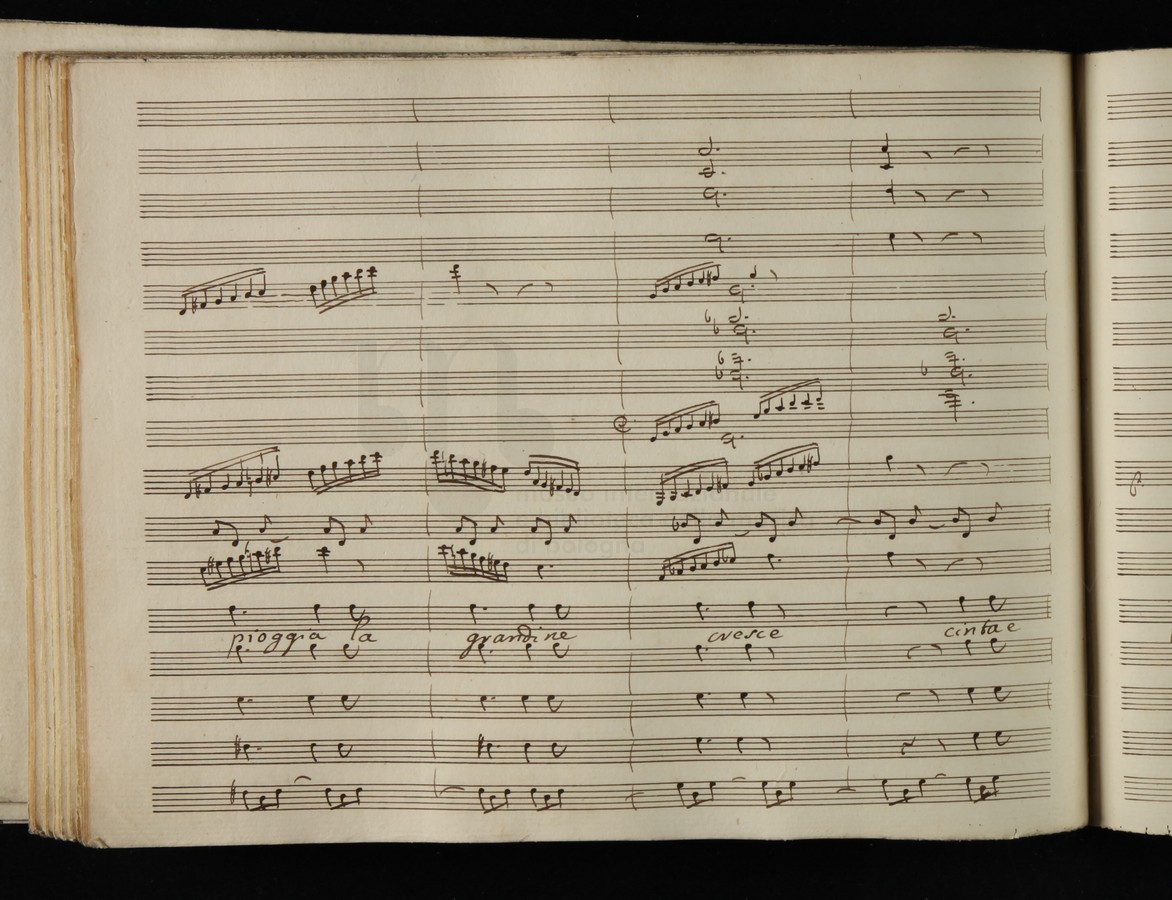 pioggia la grandine cresce cinta e
museo internazionale
e biblioteca della musica
di bologna